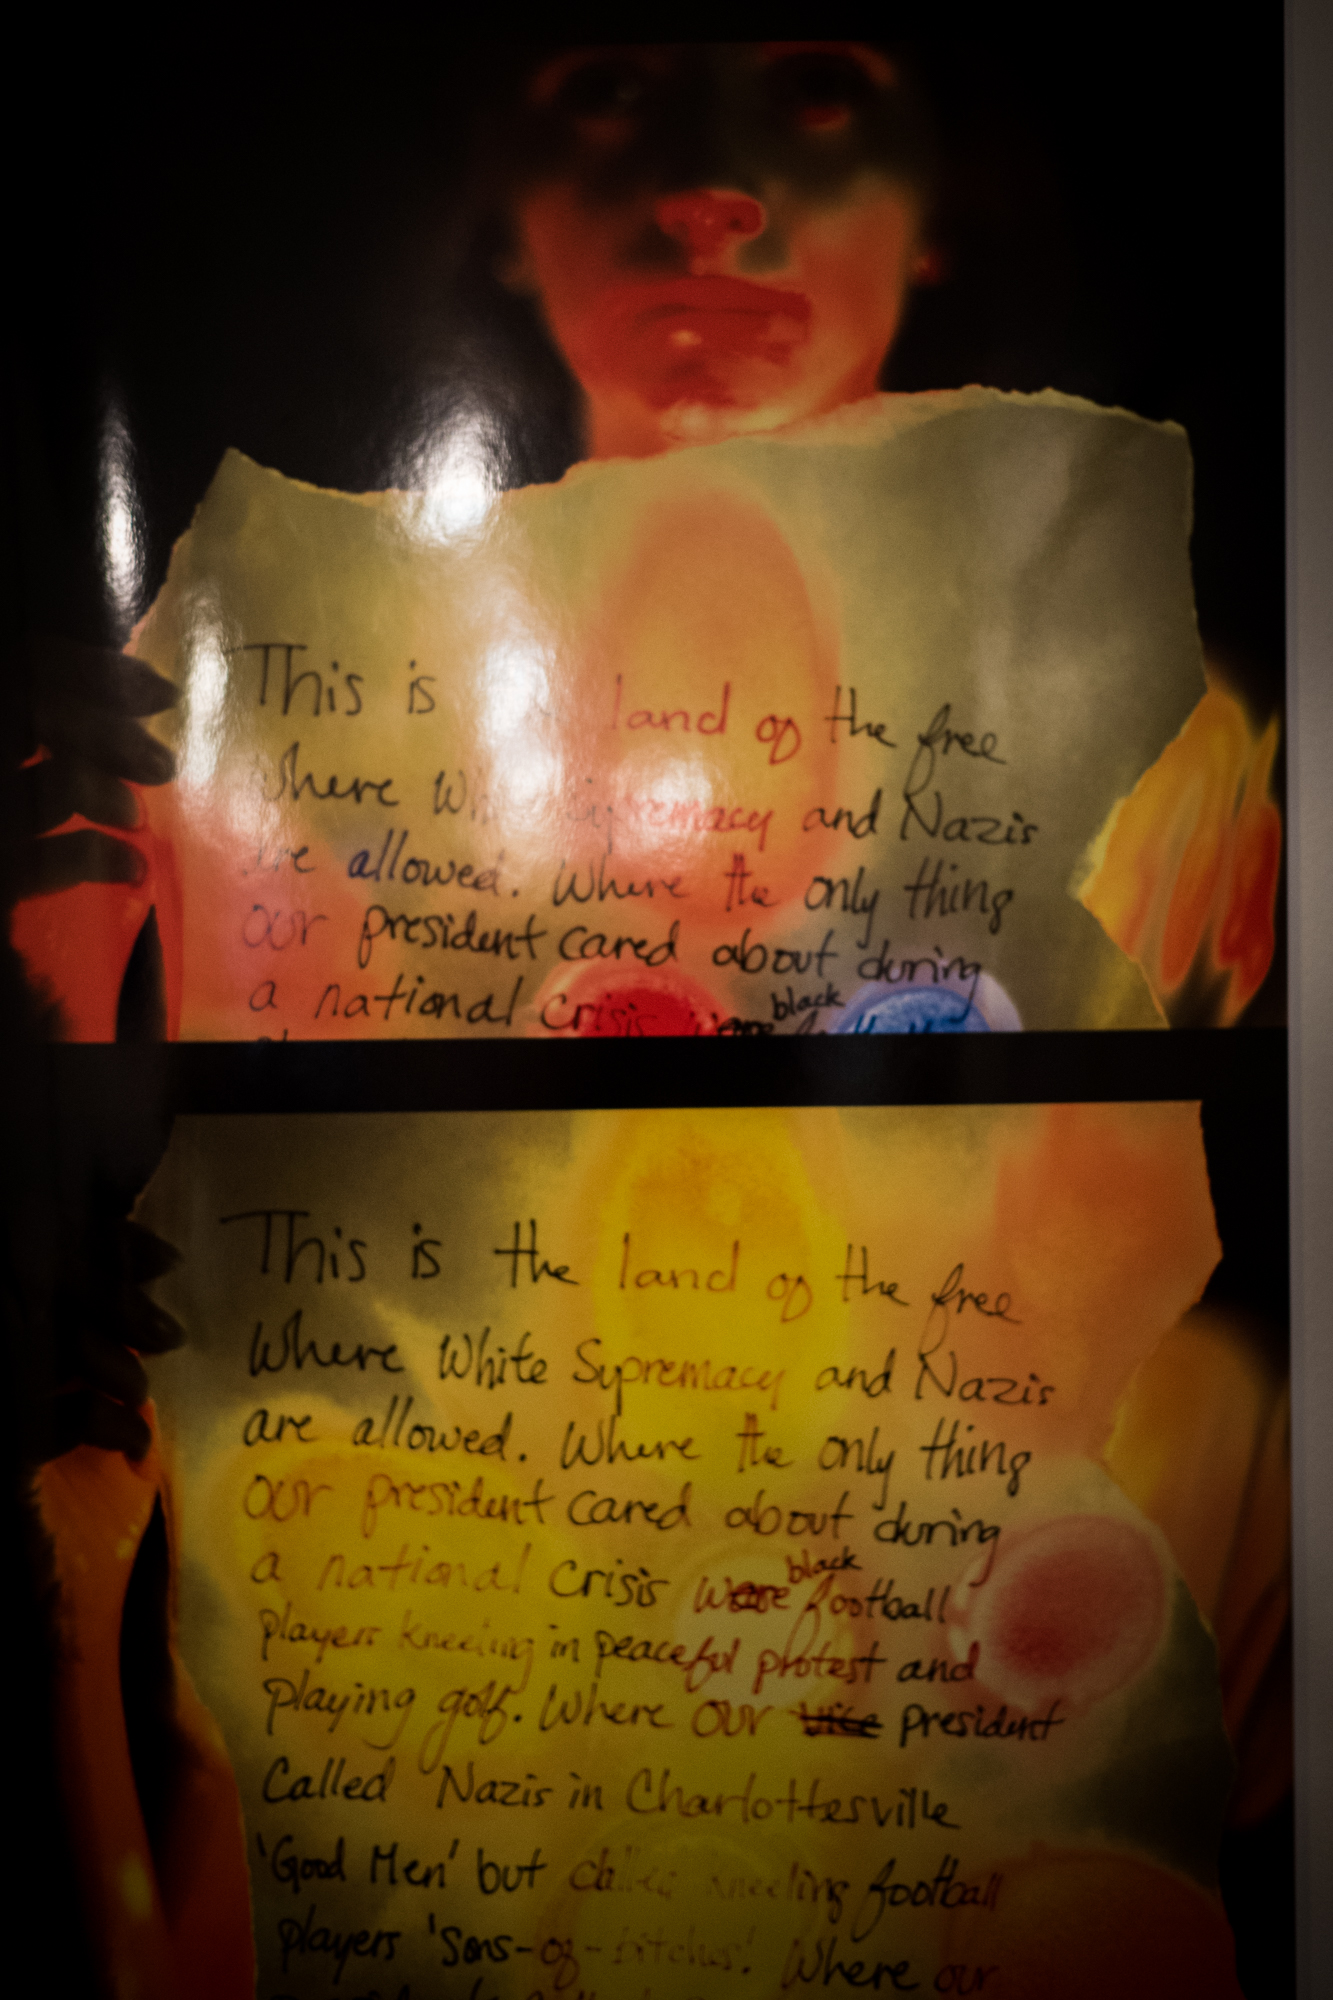 This is land of the free
Where Supremacy and Nazis
are allowed. Where the only thing
our president cared about during
a national crisis were black
This is the land of the free
Where White Supremacy and Nazis
are allowed. Where the only thing
our president cared about during
a national crisis were black football
players kneeling in peaceful protest and
playing golf. Where our vice president
Called Nazis in Charlottesville
'Good Men' but called kneeling football
players 'Sons-of-bitches'. Where our